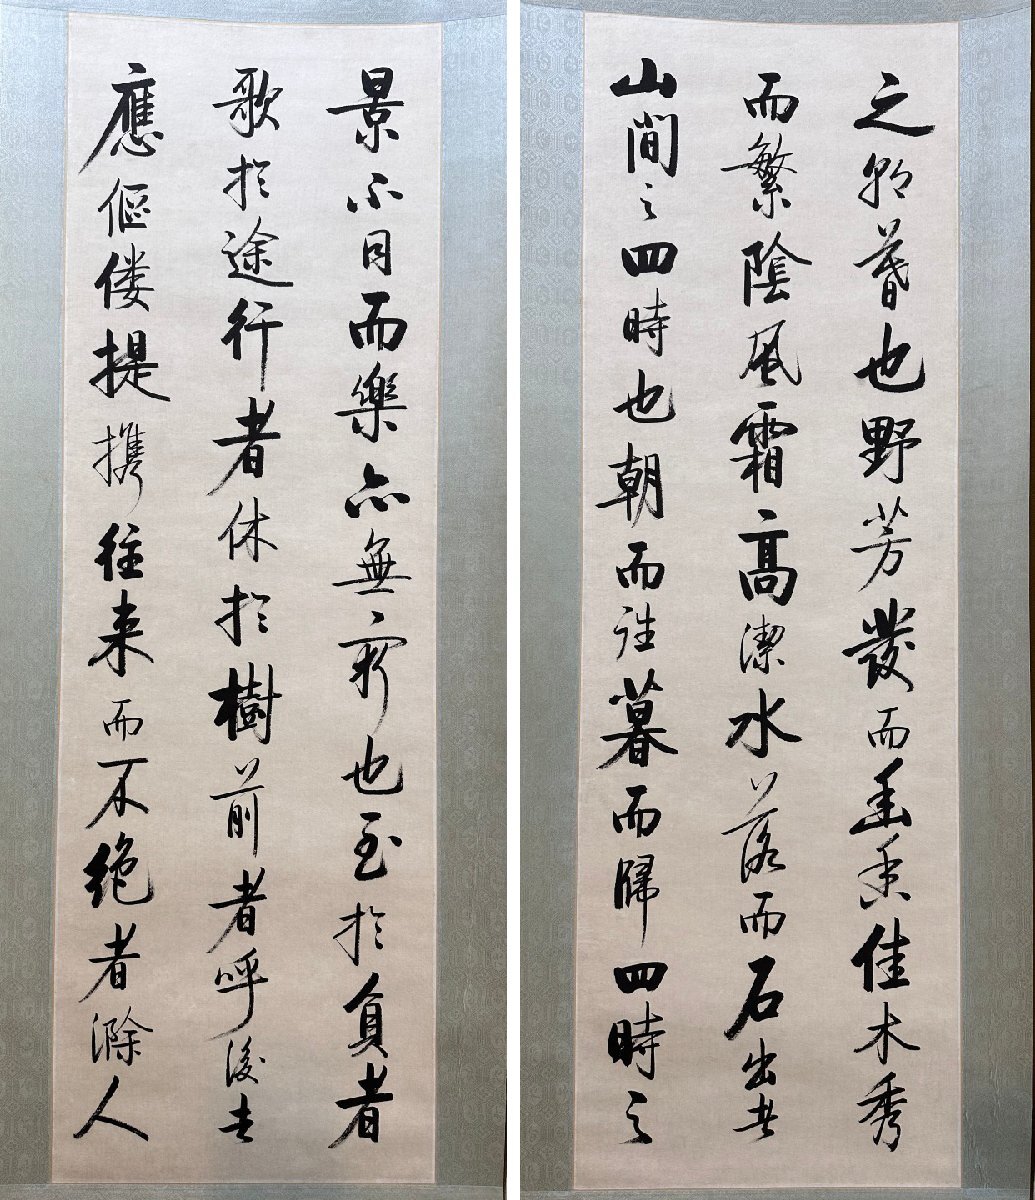 之朝暮也野芳發而幽香佳木秀
而繁陰風霜高潔水落而石出者
山間之四時也朝而往暮而歸四時之
景不同而樂亦無窮也至於負者
歌於途行者休於樹前者呼後者
應傴僂提携往来而不絶者滁人